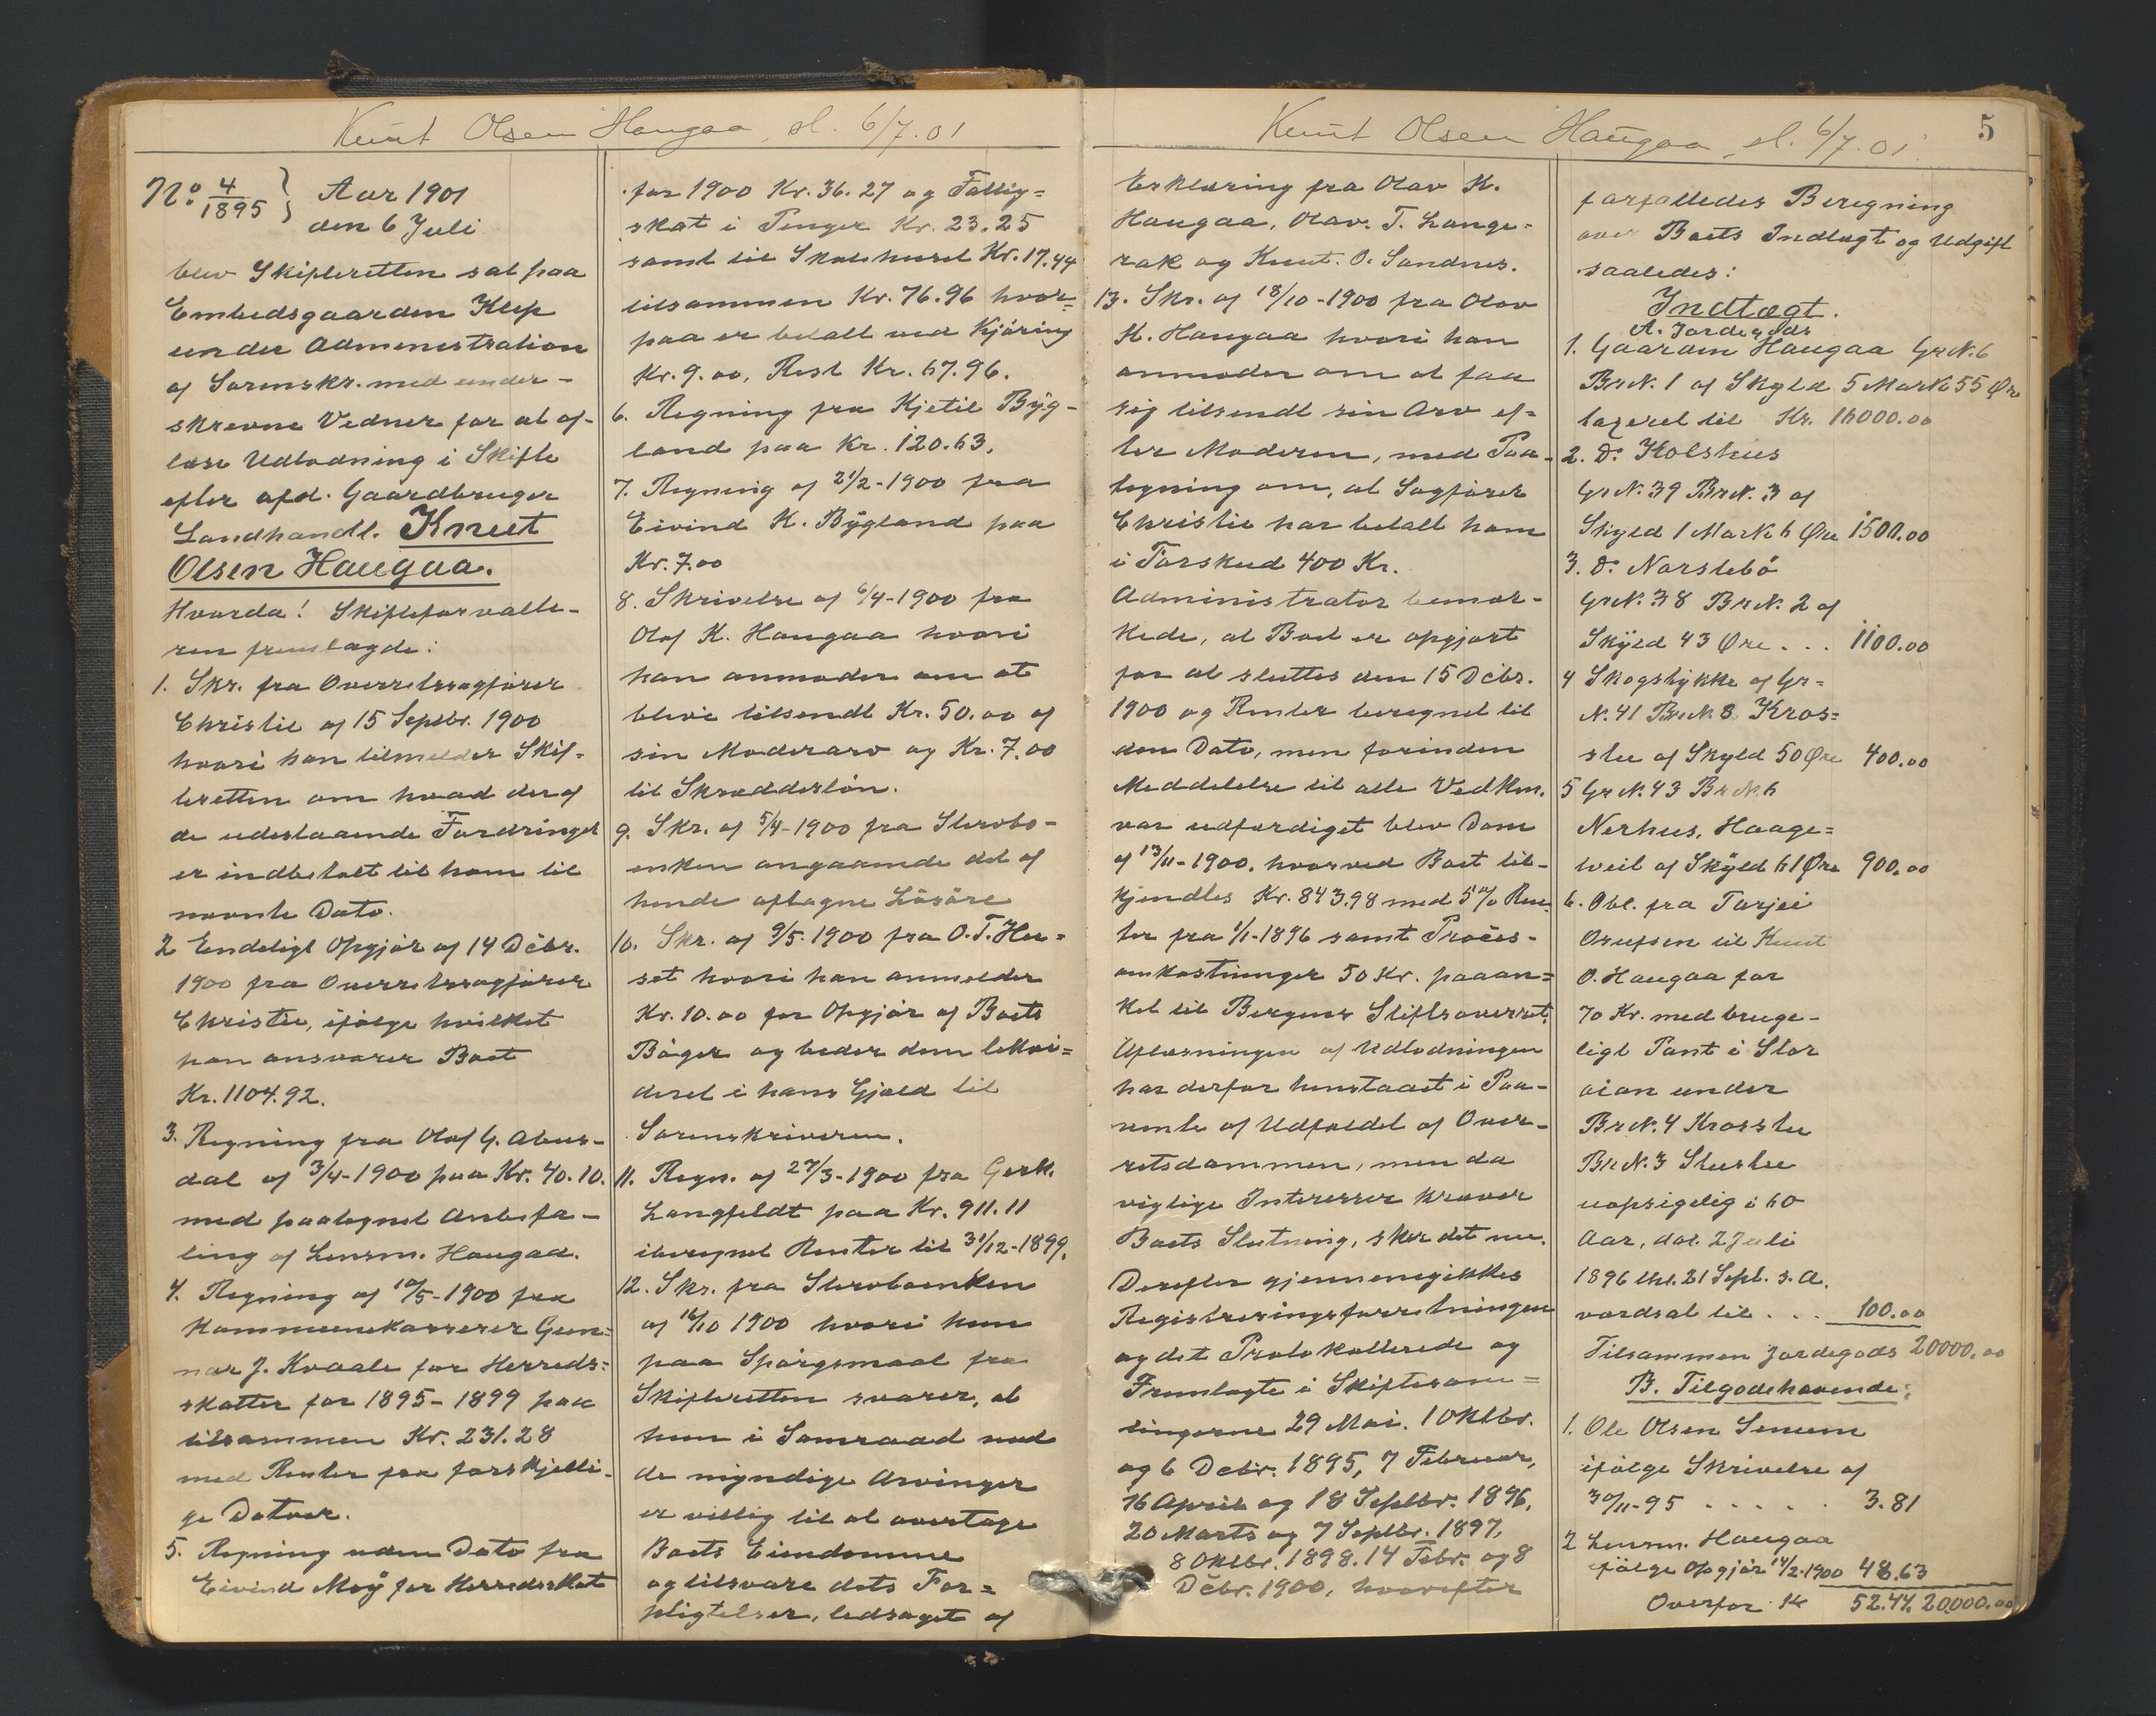 Knut Olsen Haugaa, sl. 6/7.01
No. 4/1895 } Aar 1901
den 6 Juli
blev Skifteretten sat paa
Embedsgaarden Klep
under Administration
af Sorenskr. med under-
skrevne Vidner for at af-
læse Udlodning i Skifte
efter afd. Gaardbruger
Landhandl. Knut
Olsen Haugaa.
Hvorda! Skifteforvalte-
ren fremlagde:
1. Skr. fra Overretssagfører
Christie af 15 Septbr. 1900
hvori han tilmelder Skif-
teretten om hvad der af
de udestaaende Fordringer
er indbetalt til ham til
nævnte Dato.
2 Endeligt Opgjør af 14 Debr.
1900 fra Overretssagfører
Christie, ifølge hvilket
han ansvarer Boet
Kr. 1104.92.
3. Regning fra Olaf G. Abus-
dal af 3/4-1900 paa Kr. 40.10.
med paategnet Anbefa-
ling af Lensm. Haugaa.
4. Regning af 10/5-1900 fra
Kommunekasserer Gun-
nar J. Kvaale for Herreds-
skatter for 1895-1899 paa
tilsammen Kr. 231.28
med Renter fra forskjelli-
ge Datoer.
5. Regning uden Dato fra
Eivind Moy for Herredsskat
for 1900 Kr. 36.27 og Fattig-
skat i Penger Kr. 23.25
samt til Skolehuset Kr. 17.44
tilsammen Kr. 76.96 hvor-
paa er betalt ved Kjøring
Kr. 9.00, Rest Kr. 67.96.
6. Regning fra Kjetil Byg-
land paa Kr. 120.63.
7. Regning af 21/2-1900 fra
Eivind K. Bygland paa
Kr. 7.00
8. Skrivelse af 6/4-1900 fra
Olaf K. Haugaa hvori
han anmoder om at
blive tilsendt Kr. 50.00 af
sin Moderarv og Kr. 7.00
til Skrædderløn.
9. Skr. af 5/4-1900 fra Stervbo-
enken angaaende det af
hende aftagne Løsøre
10. Skr. af 9/5.1900 fra O. T. Hu-
set hvori han anmelder
Kr. 10.00 for Opgjør af Boets
Bøger og beder dem lekvi-
deret i hans Gjæld til
Sorenskriveren.
11. Regn. af 27/3-1900 fra Gerh.
Langfeldt paa Kr. 911.11
iberegnet Renter til 31/12-1899.
12. Skr. fra Stervboenken
af 16/10 1900 hvori hun
paa Spørgsmaal fra
Skifteretten svarer, at
hun i Samraad med
de myndige Arvinger
er villig til at overtage
Boets Eiendomme
og tilsvare dets For-
pligtelser, ledsaget af
Knut Olsen Haugaa, sl. 6/7.01.
5
Erklæring fra Olav K.
Haugaa, Olav. T. Lange-
rak og Knut. O. Sandnes.
13. Skr. af 18/10-1900 fra Olav
K. Haugaa hvori han
anmoder om at faa
sig tilsendt sin Arv ef-
ter Moderen, med Paa-
tegning om, at Sagfører
Christie har betalt ham
i Forskud 400 Kr.
Administrator bemær-
kede, at Boet er opgjort
for at sluttes den 15 Debr.
1900 og Renter beregnet til
den Dato, men forinden
Meddelelse til alle Vedkm.
var udfærdiget blev Dom
af 13/11-1900, hvorved Boet til-
kjendtes Kr. 843.98 med 5% Ren-
ter fra 1/1-1896 samt Proces-
omkostninger 50 Kr. paaan-
ket til Bergens Stiftsoverret.
Aflæsningen af Udlodningen
har derfor henstaaet i Paa-
vente af Udfaldet af Over-
retsdommen, men da
vigtige Interesser kræver
Boets Slutning, sker det nu.
Derefter gjennemgikkes
Registreringsforretningen
og det Protokollerede og
Fremlagte i Skiftesam-
lingerne 29 Mai. 1 Oktbr.
og 6 Debr. 1895, 7 Februar,
16 April og 18 Septbr. 1896,
20 Marts og 7 Septbr. 1897,
8 Oktbr. 1898. 14 Febr. og 8
Debr. 1900, hvorefter
forfattedes Beregning
over Boets Indtægt og Udgift
saaledes:
Indtægt.
A. Jordegods
1. Gaarden Haugaa Gr N. 6
Br N. 1 af Skyld 5 Mark 55 Øre
taxeret til Kr. 16000.00
2. Do Kolshus
Gr N. 39 Br N. 3 af
Skyld 1 Mark 6 Øre 1500.00
3. Do Norslebø
Gr N. 38 Br N. 2 af
Skyld 43 Øre . . . 1100.00
4 Skogstykke af Gr-
N. 41 Br N. 8 Kros-
slee af Skyld 50 Øre 400.00
5 Gr N. 43 Br N. 6
Nerhus, Haage-
tveit af Skyld 61 Øre 900.00
6. Obl. fra Tarjei
til Knut
O. Haugaa for
70 Kr. med bruge-
ligt Pant i Stor
under
Br N. 4 Krosslee
Br N. 3
uopsigelig i 60
Aar, dat. 2 Juli
1896 thl. 21 Sept. s. A.
værdsat til . . . 100.00
Tilsammen Jordegods 20000.00
B. Tilgodehavende:
1. Ole Olsen Senum
ifølge Skrivelse af
30/11-95 . . . . . 3.81
2 Lensm. Haugaa
ifølge Opgjør 14/2-1900 48.63
Overfør. Kr 52.44. 20000.00